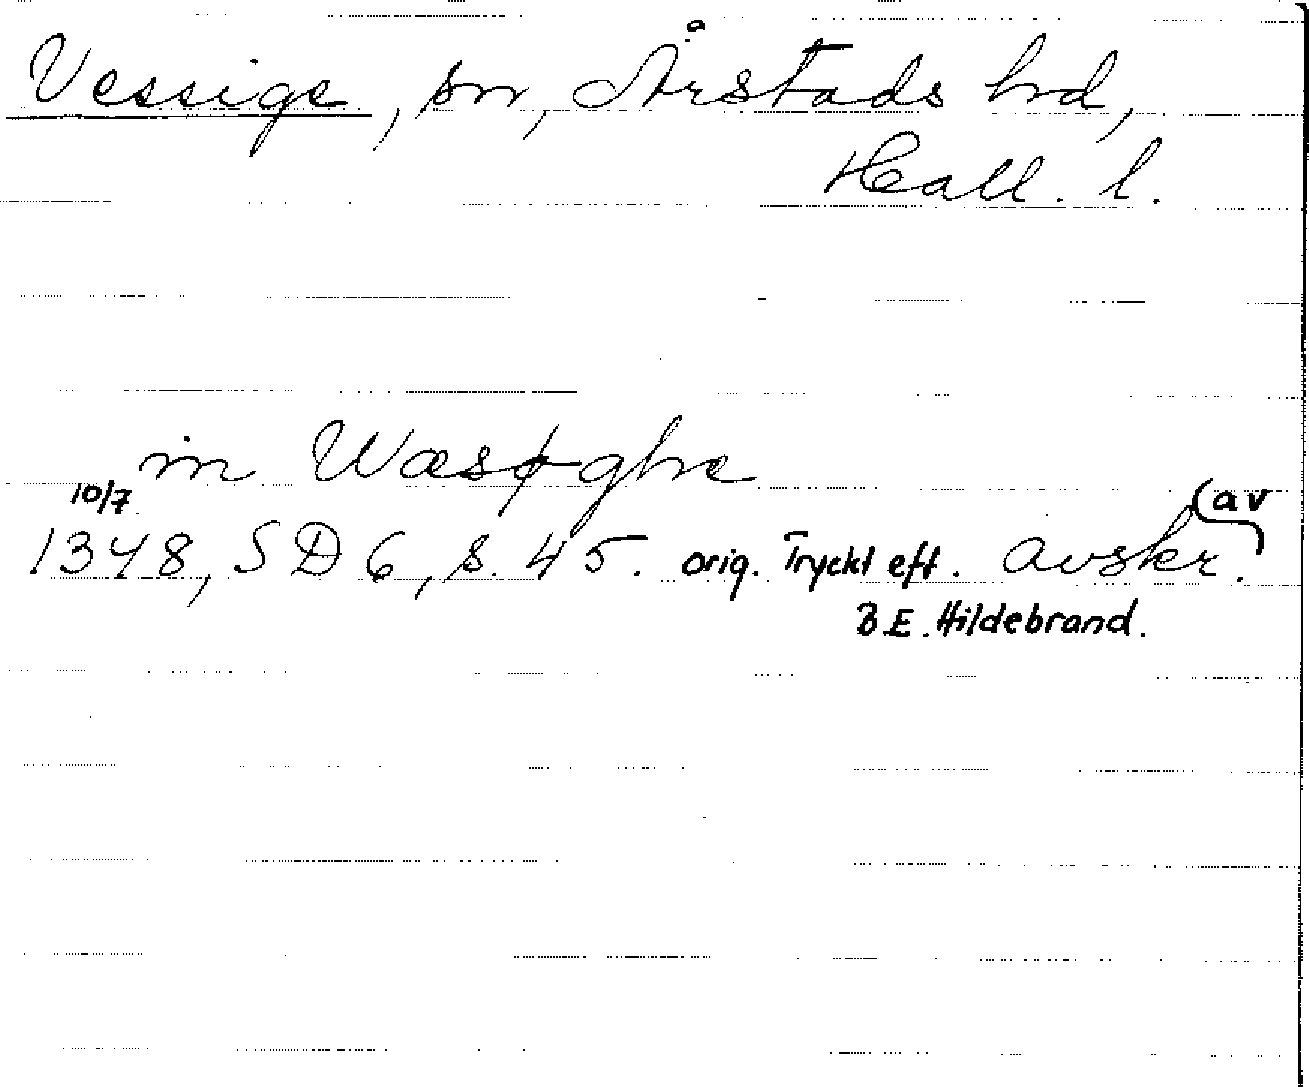 Vessige, sn, Årstads hd,
Hall. l.
in Wæsøghe
10/7
1348, SD 6, s. 45. orig. Tryckt eft. avskr. (av
B.E. Hildebrand.